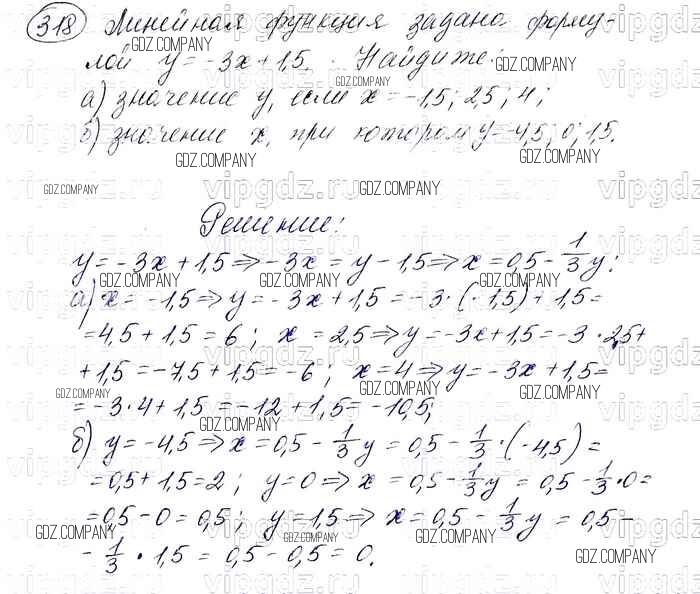 318 Линейная функция задана форму-
лой y = -3x + 1,5. Найдите:
а) значение y, если x = -1,5; 2,5; 4;
б) значение x, при котором y = -4,5; 0; 1,5.
Решение:
y = -3x + 1,5 ⇒ -3x = y - 1,5 ⇒ x = 0,5 - 1/3 y;
а) x = -1,5 ⇒ y = -3x + 1,5 = -3 · (-1,5) + 1,5 =
= 4,5 + 1,5 = 6; x = 2,5 ⇒ y = -3x + 1,5 = -3 · 2,5 +
+ 1,5 = -7,5 + 1,5 = -6; x = 4 ⇒ y = -3x + 1,5 =
= -3 · 4 + 1,5 = -12 + 1,5 = -10,5;
б) y = -4,5 ⇒ x = 0,5 - 1/3 y = 0,5 - 1/3 · (-4,5) =
= 0,5 + 1,5 = 2; y = 0 ⇒ x = 0,5 - 1/3 y = 0,5 - 1/3 · 0 =
= 0,5 - 0 = 0,5; y = 1,5 ⇒ x = 0,5 - 1/3 y = 0,5 -
- 1/3 · 1,5 = 0,5 - 0,5 = 0.
GDZ.COMPANY
vipgdz.ru